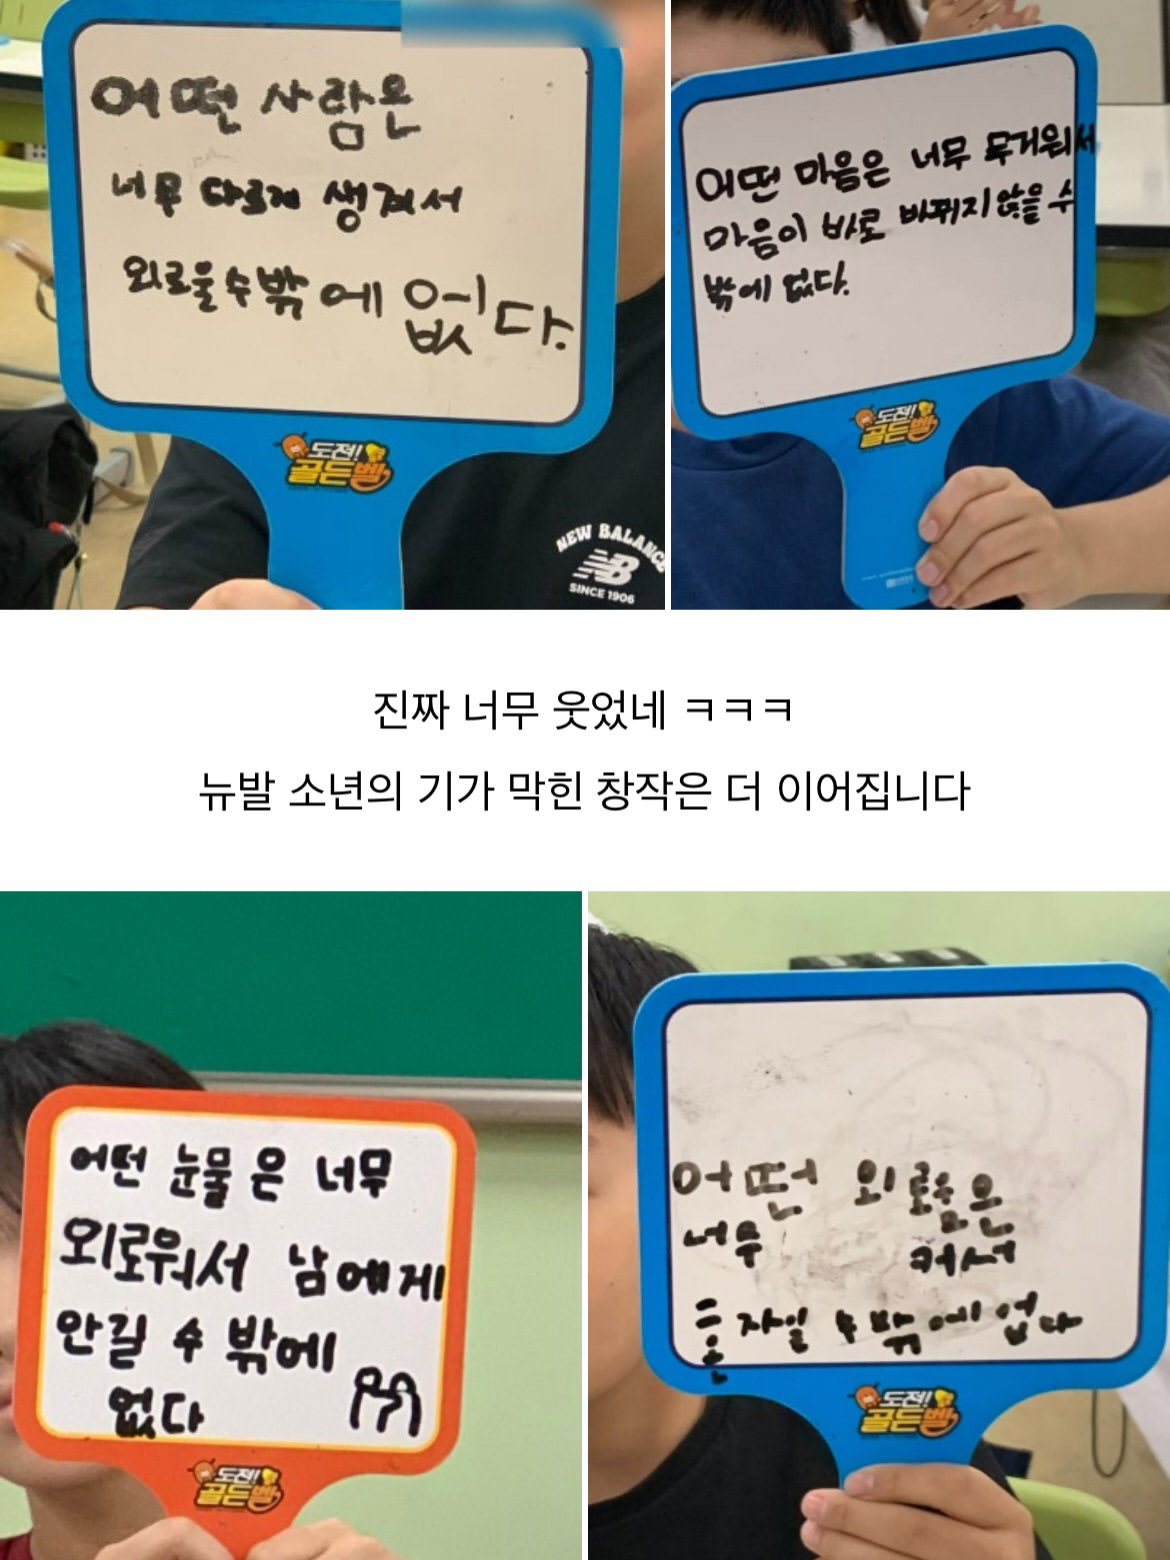 어떤 사람은
너무 다르게 생겨서
외로울 수 밖에 없다.
도전!
골든벨
NEW BALANCE
NB
SINCE 1906
어떤 마음은 너무 무거워서
마음이 바로 바뀌지 않을 수
밖에 없다.
도전!
골든벨
진짜 너무 웃었네 ㅋㅋㅋ
뉴발 소년의 기가 막힌 창작은 더 이어집니다
어떤 눈물은 너무
외로워서 남에게
안길 수 밖에
없다
도전!
골든벨
어떤 외로움은
너무 커서
혼자일 수 밖에 없다
도전!
골든벨